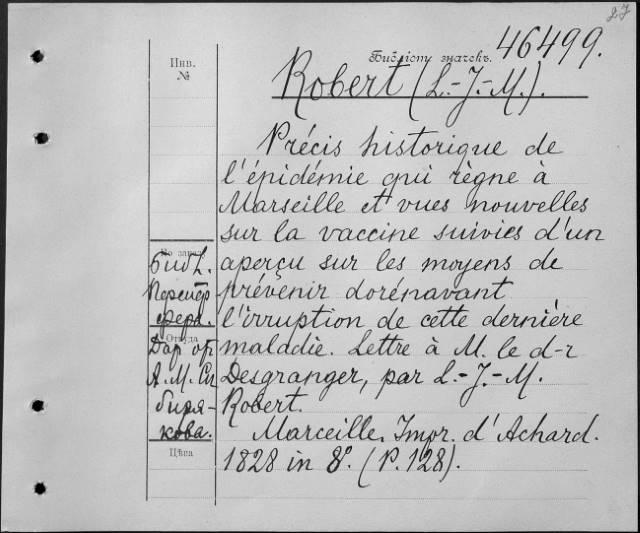 27
46499.
Инв.
№
Библіот. значекъ.
Robert (L.-J.-M.).
Précis historique de
l'épidémie qui règne à
Marseille et vues nouvelles
sur la vaccine suivies d'un
aperçu sur les moyens de
prévenir dorénavant
l'irruption de cette dernière
maladie. Lettre à M. le d-r
Desgranger, par L.-J.-M.
Robert.
Marceille. Impr. d'Achard.
1828 in 8º. (P. 128).
Библ.
Откуда
Дар от
А. М. Си
биря-
кова.
Цѣна